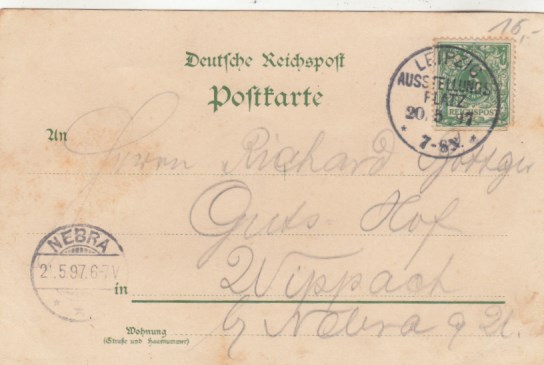 15,-
Deutsche Reichspost
Postkarte
LEIPZIG
AUSSTELLUNGS
PLATZ
20. 5. 97
7-8 N.
REICHSPOST
An
Herrn Richard
Guts-Hof
NEBRA
21.5.97. 6-7 V
in
Wippach
b/ Nebra a U.
Wohnung
(Straße und Hausnummer)